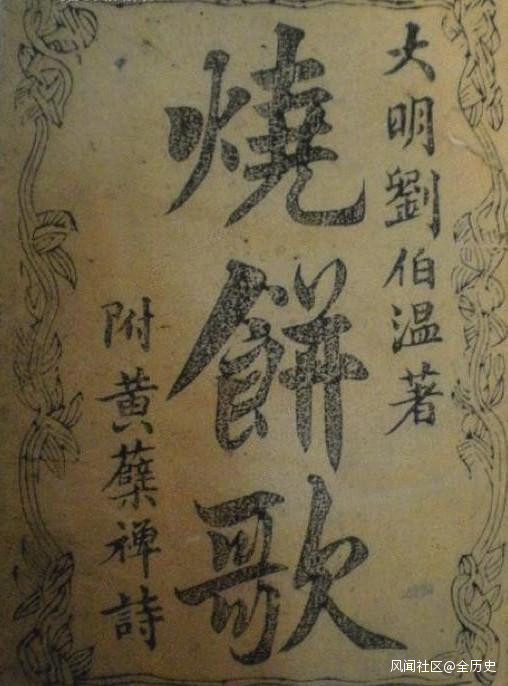 大明劉伯温著
燒餅歌
附黄蘗禅詩
风闻社区@全历史